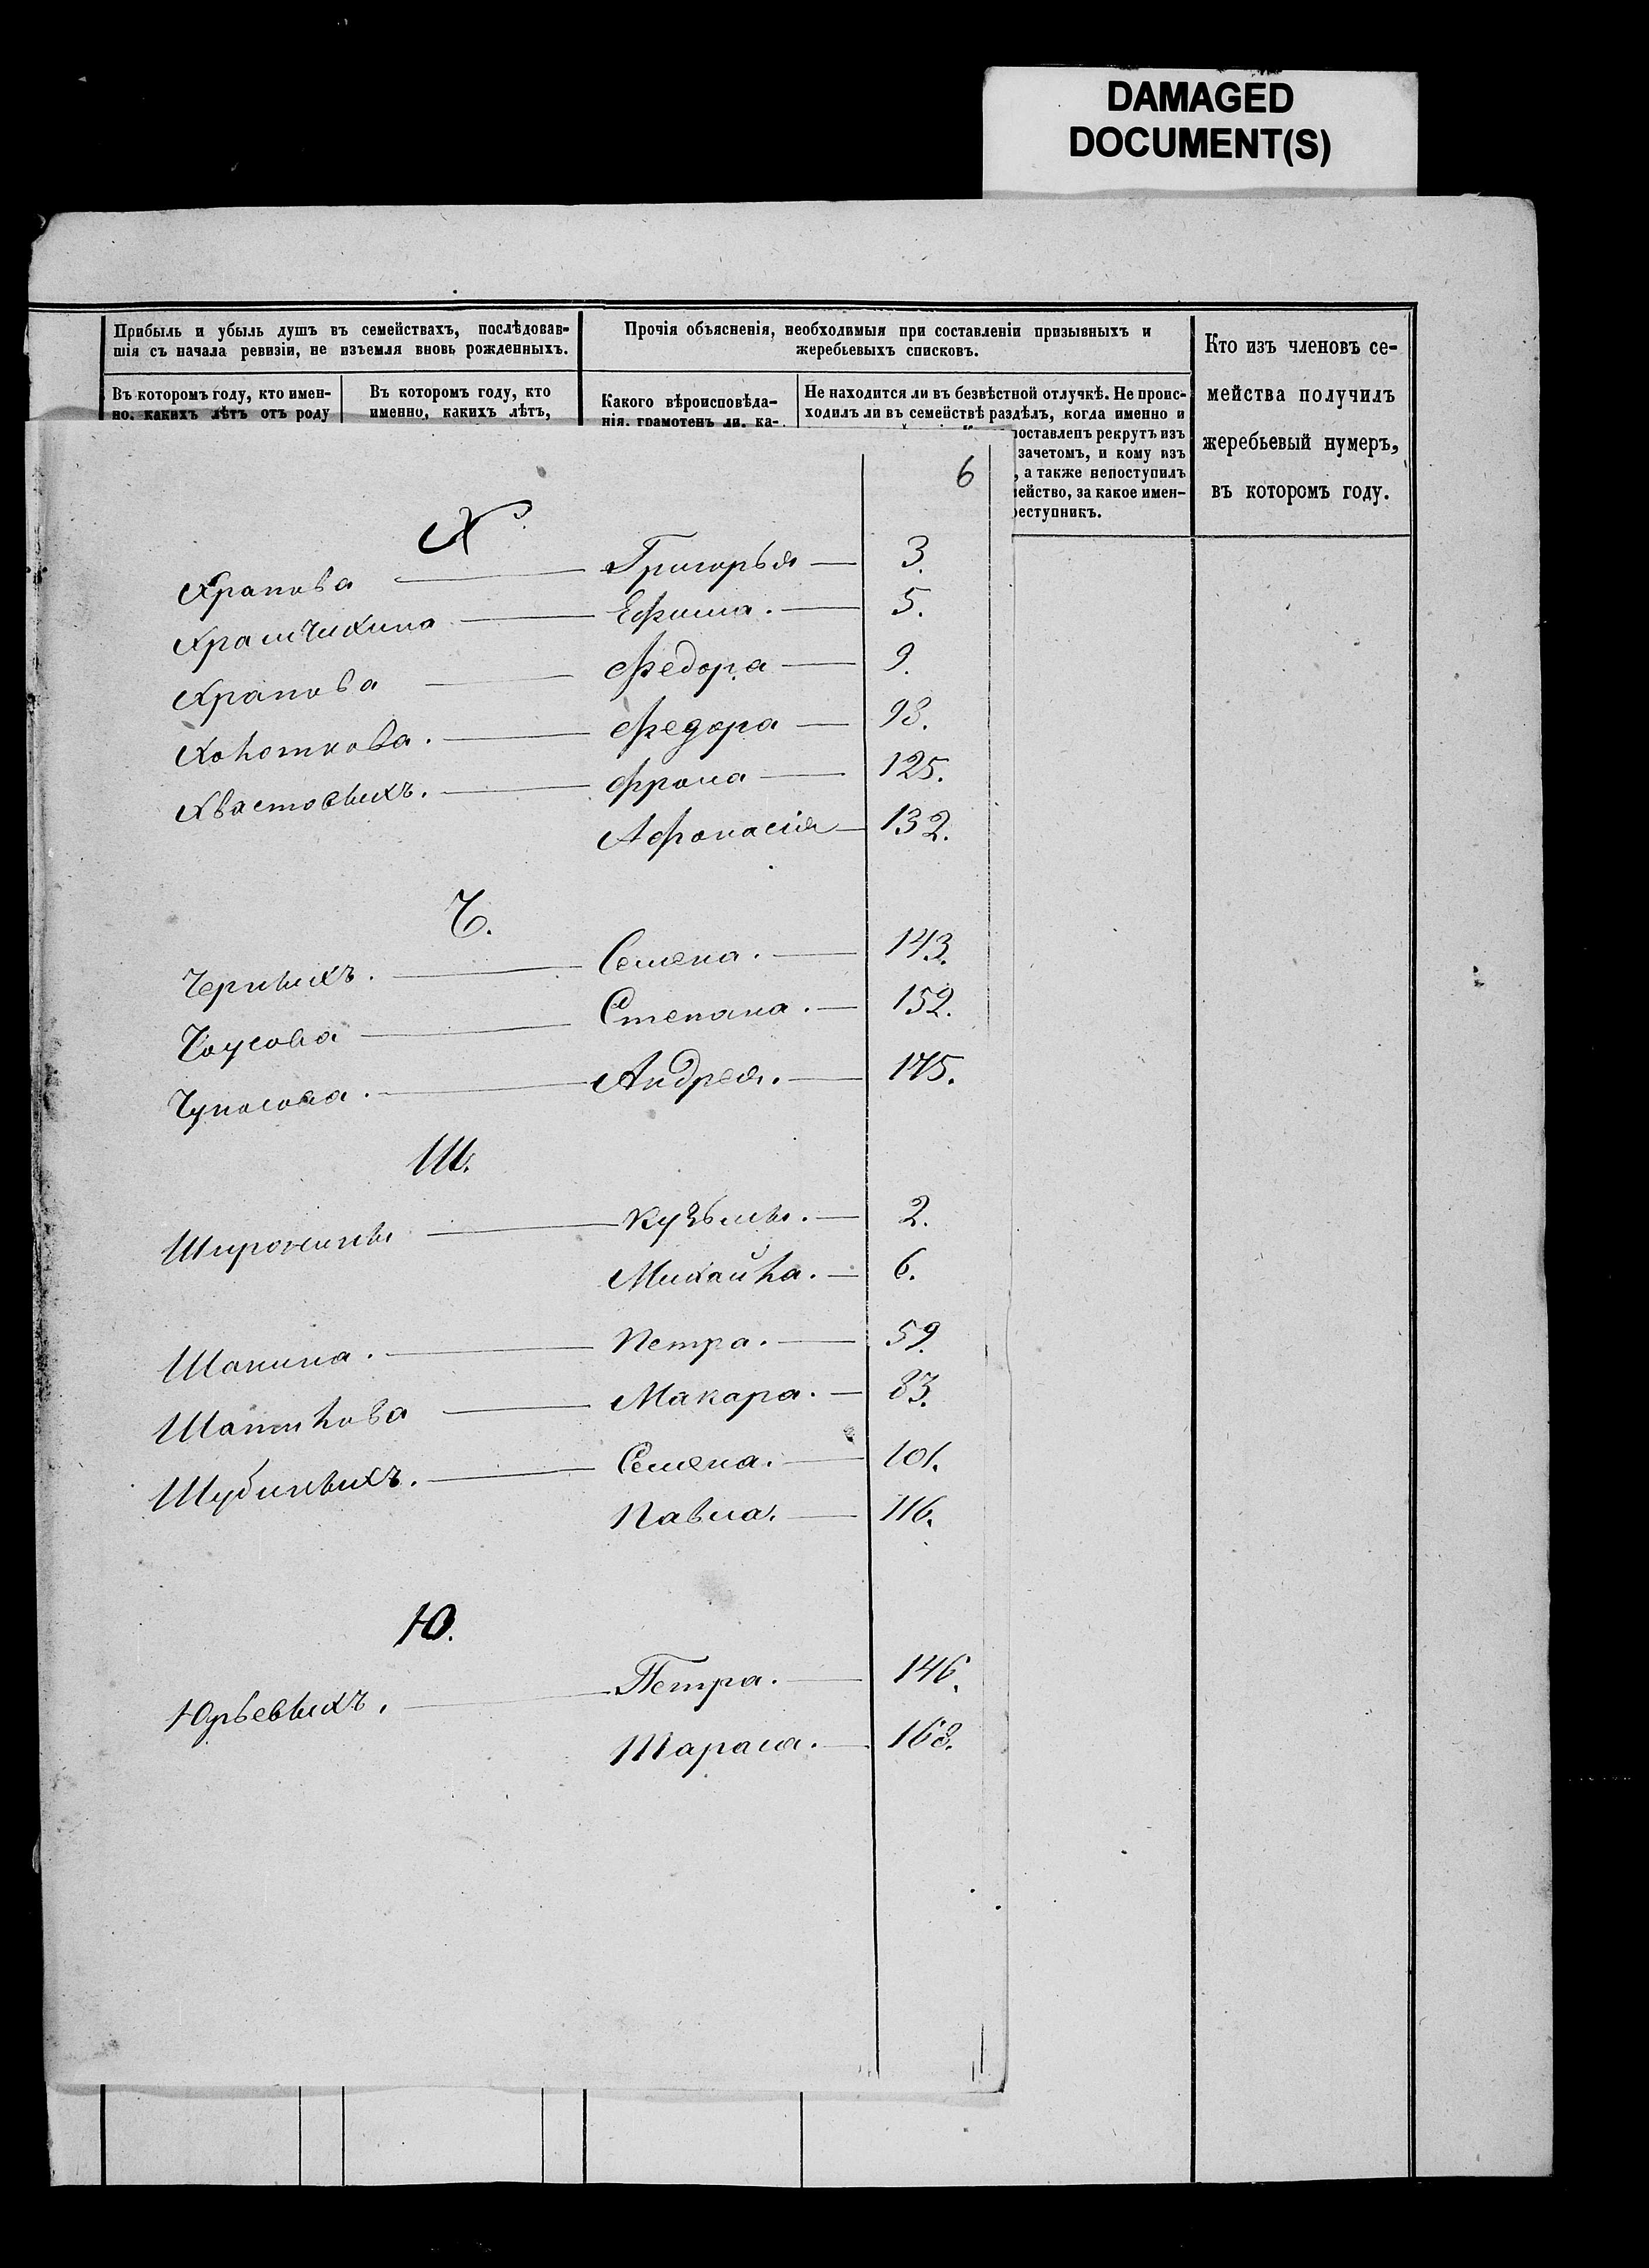 DAMAGED
DOCUMENT(S)
Прибыль и убыль душъ въ семействахъ, послѣдовав-
шія съ начала ревизіи, не изъемля вновь рожденныхъ.
Прочія объясненія, необходимыя при составленіи призывныхъ и
жеребьевыхъ списковъ.
Кто изъ членовъ се-
мейства получилъ
жеребьевый нумеръ,
въ которомъ году.
Въ которомъ году, кто имен-
но, какихъ лѣтъ отъ роду
Въ которомъ году, кто
именно, какихъ лѣтъ,
Какого вѣроисповѣда-
нія, грамотенъ ли, ка-
Не находится ли въ безвѣстной отлучкѣ. Не проис-
ходилъ ли въ семействѣ раздѣлъ, когда именно и
поставленъ рекрутъ изъ
зачетомъ, и кому изъ
, а также непоступилъ
мейство, за какое имен-
реступникъ.
6
Х.
Храпова Григорья 3.
Храмчихина Ефима. 5.
Храпова Федора 9.
Хохоткова. Федора 98.
Хвастовыхъ. Фрола 125.
Афонасія 132.
Ч.
Черныхъ. Семена. 143.
Чаусова Степана. 152.
Чупосова. Андрея. 175.
Ш.
Широнины Кузьмы. 2.
Михайла. 6.
Шанина. Петра. 59.
Шапилова Макара. 83.
Шубиныхъ. Семена. 101.
Павла. 116.
Ю.
Юрьевыхъ. Петра. 146.
Тараса. 168.